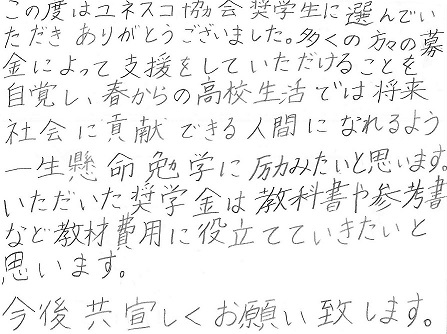 この度はユネスコ協会奨学生に選んでい
ただきありがとうございました。多くの方々の募
金によって支援をしていただけることを
自覚し、春からの高校生活では将来
社会に貢献できる人間になれるよう
一生懸命勉学に励みたいと思います。
いただいた奨学金は教科書や参考書
など教材費用に役立てていきたいと
思います。
今後共宜しくお願い致します。